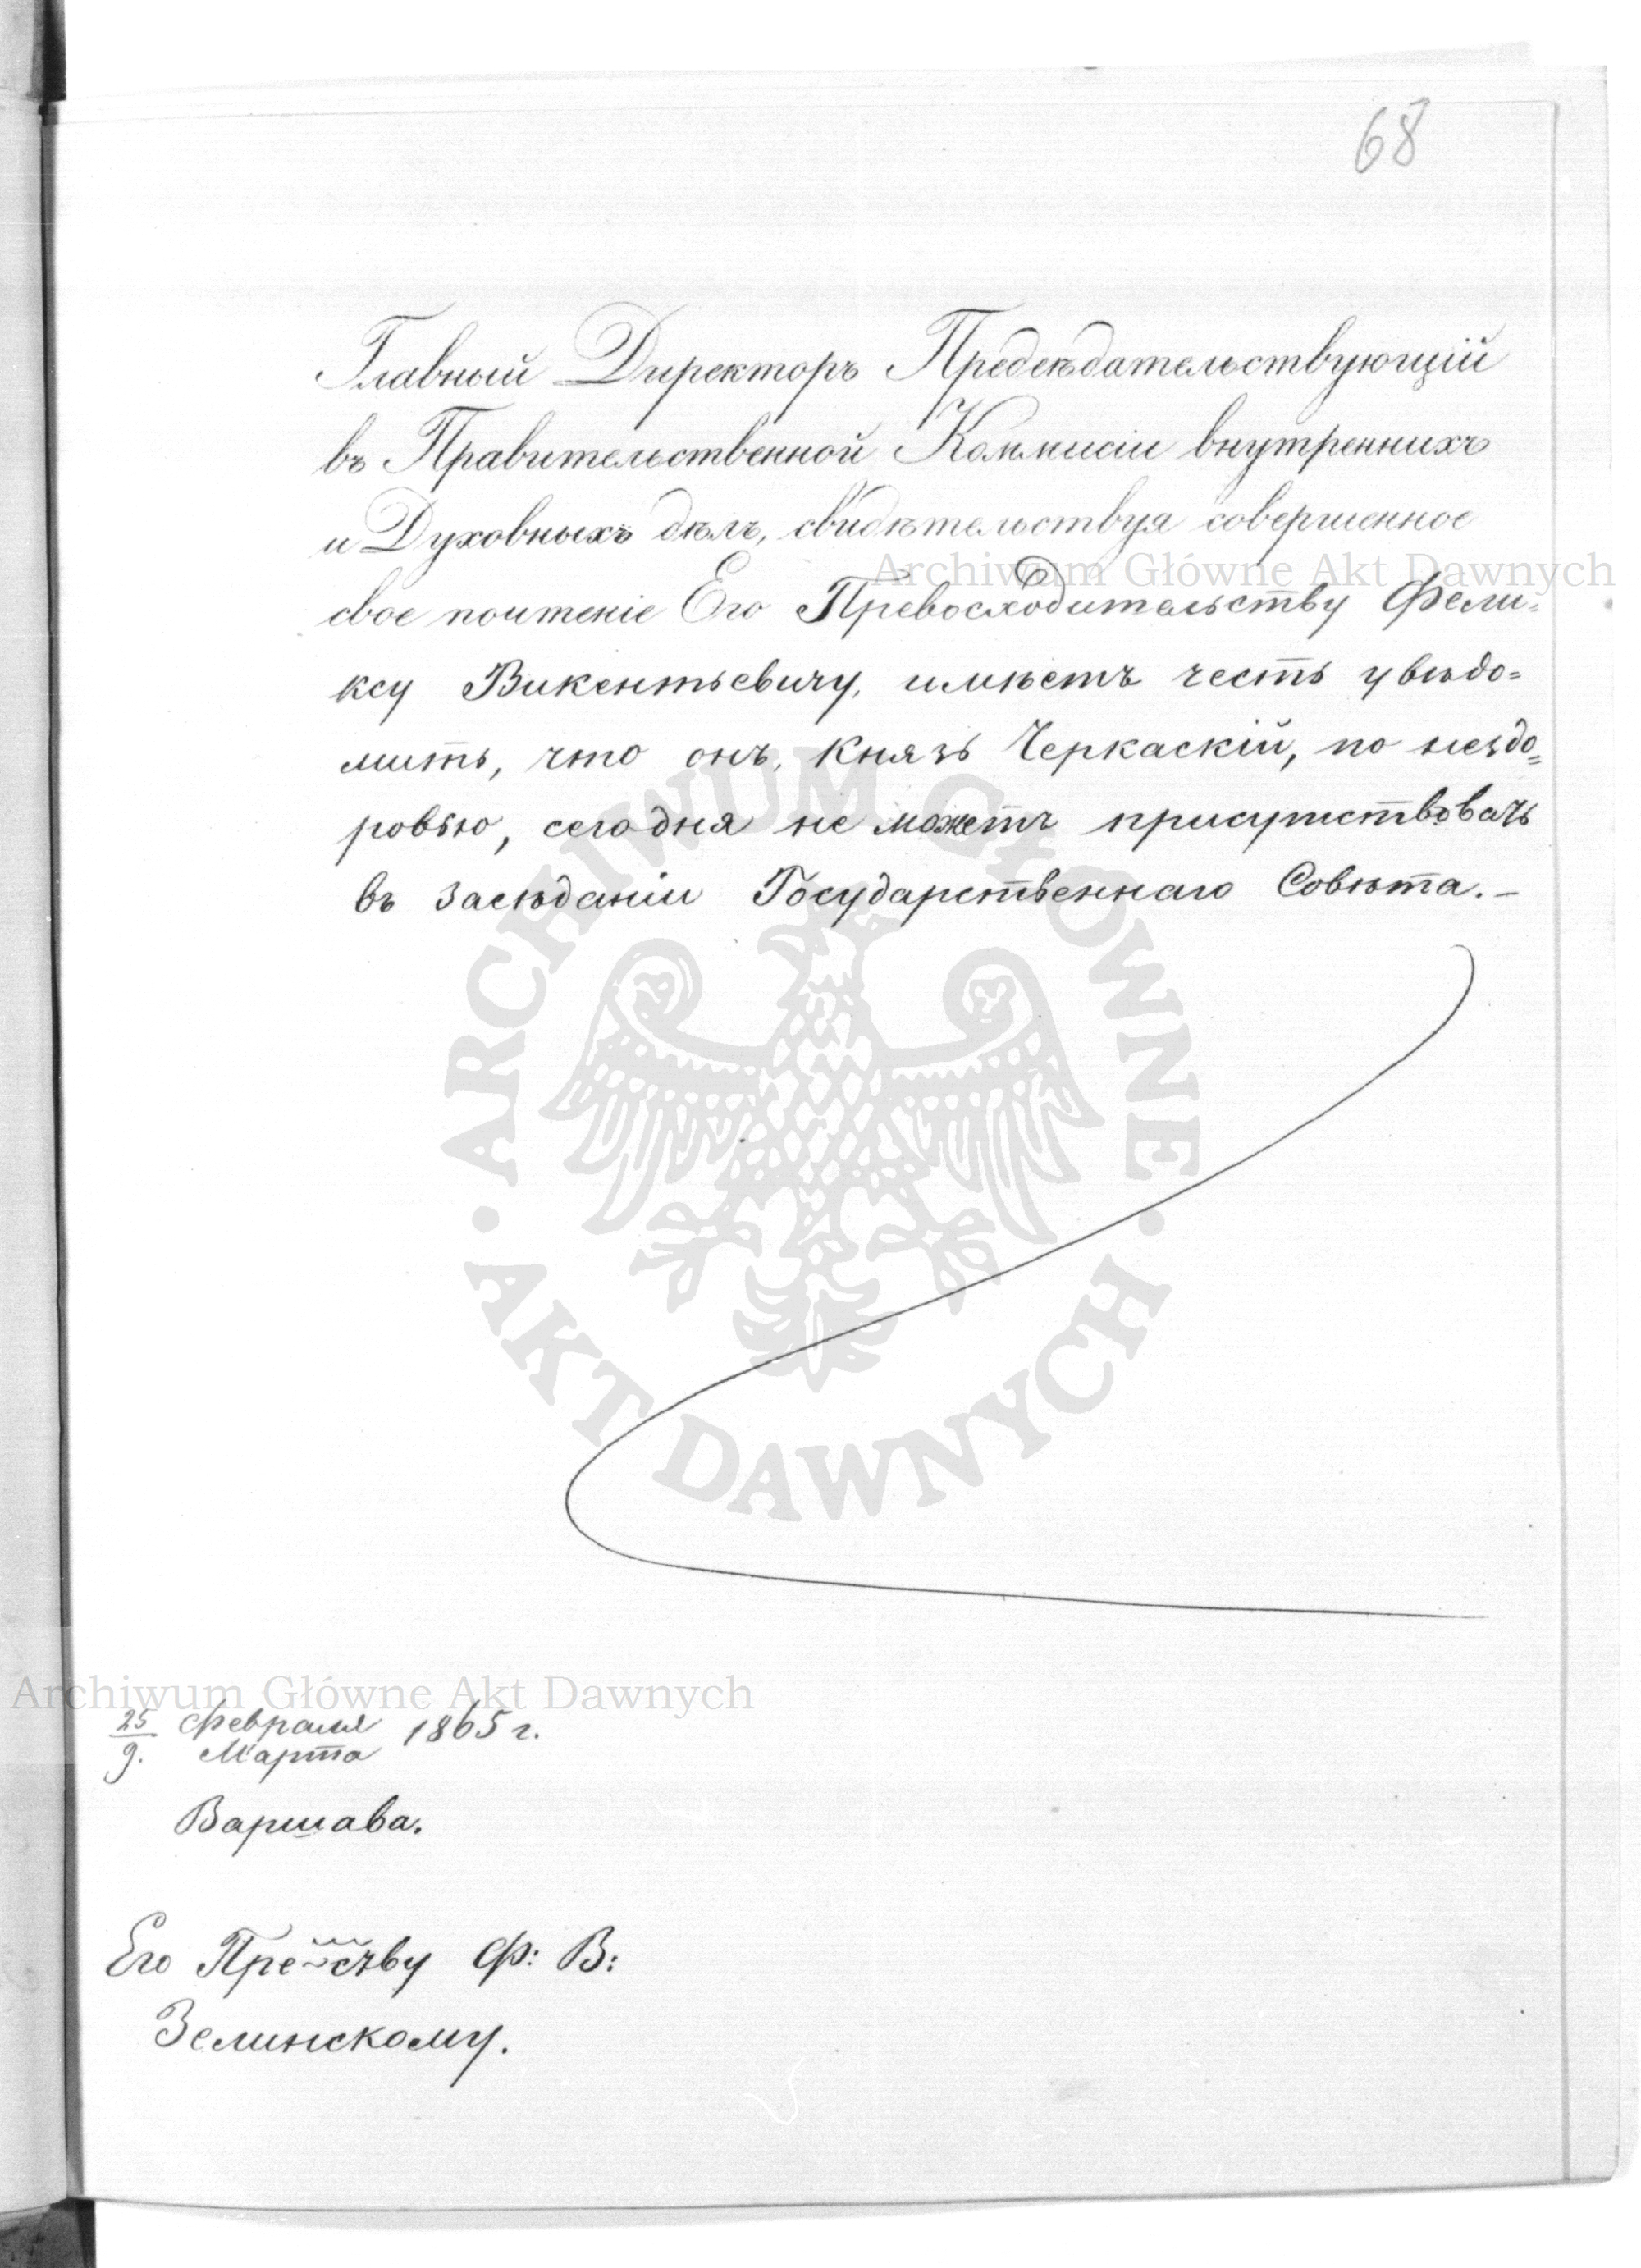 68
Главный Директоръ Предсѣдательствующій
въ Правительственной Коммисіи внутреннихъ
и Духовныхъ дѣлъ, свидѣтельствуя совершенное
свое почтеніе Его Превосходительству Фели-
ксу Викентьевичу, имѣетъ честь увѣдо=
мить, что онъ, Князь Черкаскій, по нездо=
ровью, сегодня не можетъ присутствовать
въ засѣданіи Государственнаго Совѣта. –
25 Февраля 1865 г.
9. Марта
Варшава.
Его Пре~ству Ф: В:
Зелинскому.
Archiwum Główne Akt Dawnych
ARCHIWUM GŁÓWNE · AKT DAWNYCH ·
Archiwum Główne Akt Dawnych